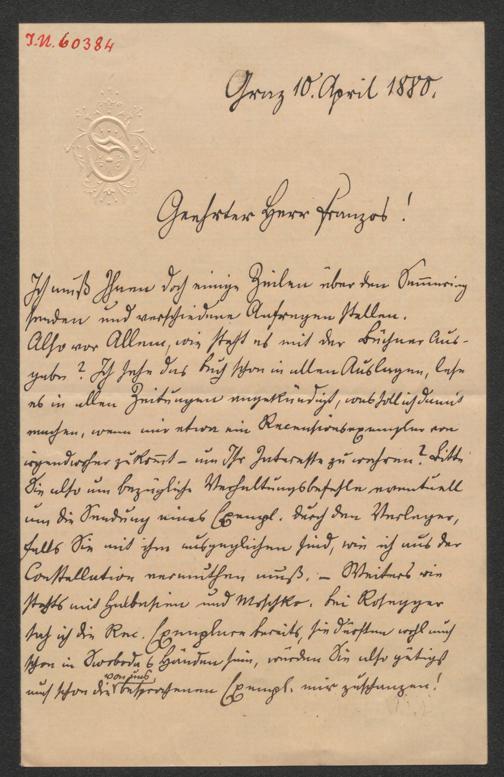 I.N. 60384
Graz 10. April 1880.
S
Geehrter Herr Franzos!
Ich muß Ihnen doch einige Zeilen über den Semmering
senden und verschiedene Anfragen stellen.
Also vor Allem, wie steht es mit der Büchner Aus-
gabe? Ich sehe das Buch schon in allen Auslagen, lese
es in allen Zeitungen angekündigt, was soll ich damit
machen, wenn mir etwa ein Recensionsexemplar von
irgendwoher zukommt – um Ihr Interesse zu wahren? Bitte
Sie also um bezügliche Verhaltungsbefehle eventuell
um die Sendung eines Exempl. durch den Verleger,
falls Sie mit ihm ausgeglichen sind, wie ich aus der
Constellation vermuthen muß. – Weiters wie
steht's mit Halbasien und Moschko. Bei Rosegger
sah ich die Rec. Exemplare bereits, sie dürften wohl auch
schon in Swoboda's Händen sein, würden Sie also gütigst
von uns
auch schon die besprochenen Exempl. mir zuschanzen!